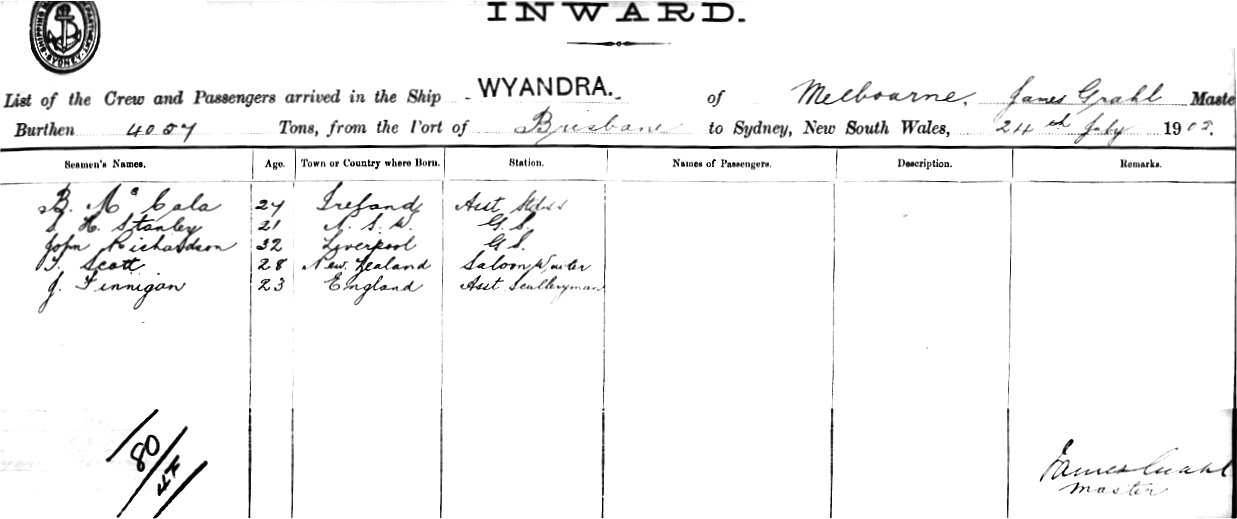 INWARD.
List of the Crew and Passengers arrived in the Ship WYANDRA. of Melbourne, James Grahl Maste
Burthen 4057 Tons, from the Port of Brisbane to Sydney, New South Wales, 24th July 1905.
Seamen's Names. Age. Town or Country where Born. Station. Names of Passengers. Description. Remarks.
B. McCala 27 Ireland Asst Stdss
S. H. Stanley 21 N. S. W. G. S.
John Richardson 32 Liverpool G. S.
T. Scott 28 New Zealand Saloon Waiter
J. Finnigan 23 England Asst Sculleryman
80
4F
James Grahl
Master